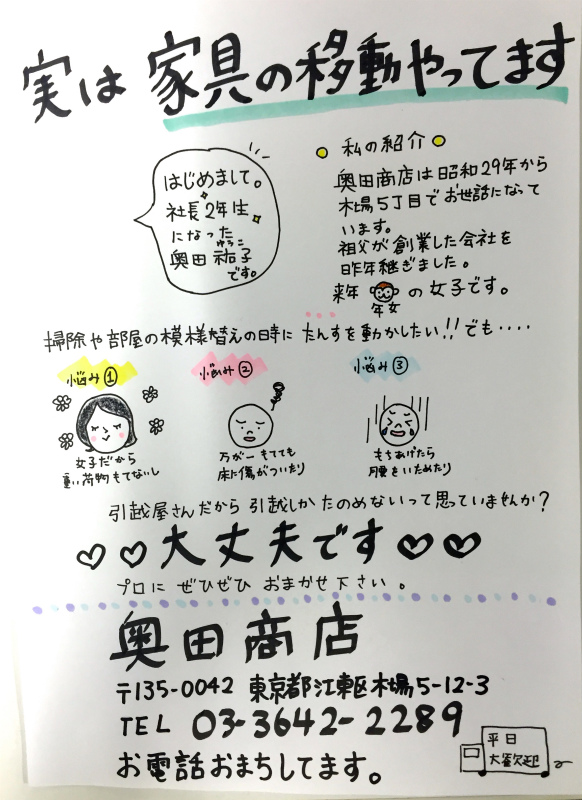 実は 家具の移動やってます
はじめまして。
社長2年生
になった
ゆうこ
奥田 祐子
です。
私の紹介
奥田商店は昭和29年から
木場5丁目でお世話になって
います。
祖父が創業した会社を
昨年継ぎました。
来年 の女子です。
年女
掃除や部屋の模様替えの時に たんすを動かしたい!! でも・・・・
悩み①
悩み②
悩み③
女子だから
重い荷物もてないし
万が一 もてても
床に傷がついたり
もちあげたら
腰をいためたり
引越屋さんだから 引越しか たのめないって思っていませんか?
大丈夫です
プロに ぜひぜひ おまかせ下さい。
奥田商店
〒135-0042 東京都江東区木場5-12-3
TEL 03-3642-2289
お電話おまちしてます。
平日
大歓迎